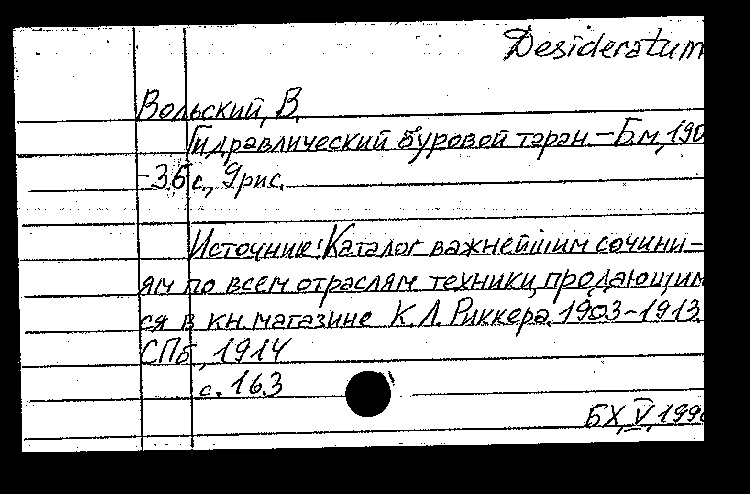 Desideratum
Вольский, В.
Гидравлический буровой таран. - Б.м., 190
- 36 с., 9 рис.
Источник: Каталог важнейшим сочини-
ям по всем отраслям техники, продающим
ся в кн. магазине К.Л. Риккера. 1903-1913.
СПб, 1914
с. 163
БХ, V, 199